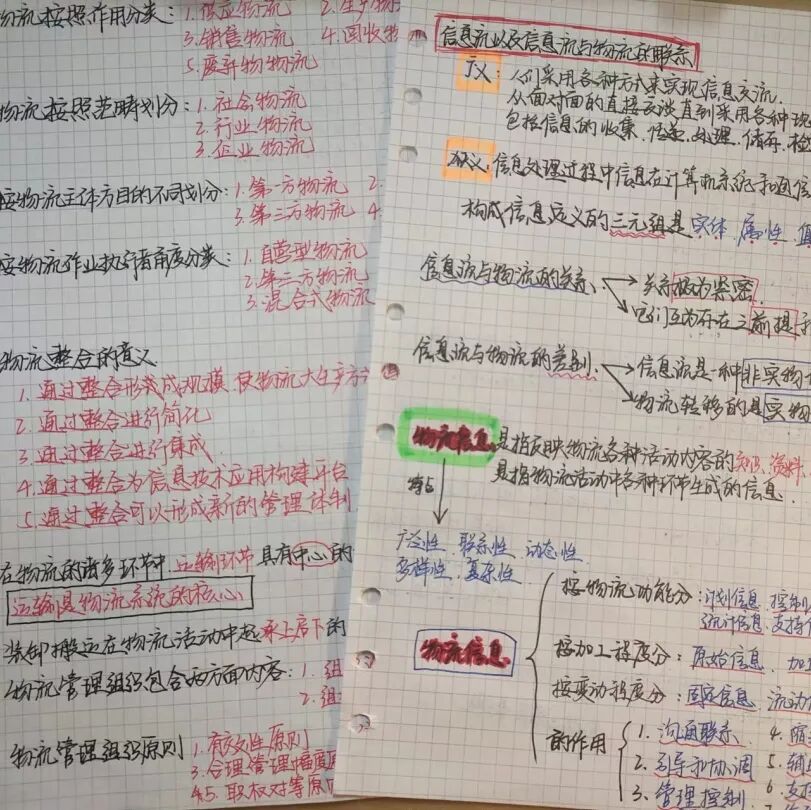 物流按照作用分类：1.供应物流 2.生产物
3.销售物流 4.回收物
5.废弃物物流
物流按照范畴划分：1.社会物流
2.行业物流
3.企业物流
按物流主体方目的不同划分：1.第一方物流 2.
3.第三方物流 4.
按物流作业执行者角度分类：1.自营型物流
2.第三方物流
3.混合式物流
物流整合的意义
1.通过整合形成规模，使物流大生产方
2.通过整合进行简化
3.通过整合进行集成
4.通过整合为信息技术应用构建平台
5.通过整合可以形成新的管理体制
在物流的诸多环节中，运输环节具有中心的
运输是物流系统的核心
装卸搬运在物流活动中起承上启下的
物流管理组织包含两方面内容：1.组
2.组
物流管理组织原则 1.有效性原则
3.合理管理幅度原
5.职权对等原
信息流以及信息流与物流的联系
广义：人们采用各种方式来实现信息交流.
从面对面的直接交谈直到采用各种现
包括信息的收集、传递、处理、储存、检
狭义：信息处理过程中信息在计算机系统和通信
构成信息定义的三元组是实体、属性、值
信息流与物流的关系 关系极为紧密.
它们互为存在之前提
信息流与物流的差别 信息流是一种非实物
物流转移的是实物
物流信息 是指反映物流各种活动内容的知识、资料、
是指物流活动中各种环节生成的信息.
特点
广泛性、联系性、动态性
多样性、复杂性
物流信息
按物流功能分：计划信息、控制
统计信息、支持
按加工程度分：原始信息、加
按变动程度分：固定信息、流动
的作用 1.沟通联系 4.
2.引导和协调 5.辅
3.管理控制 6.支